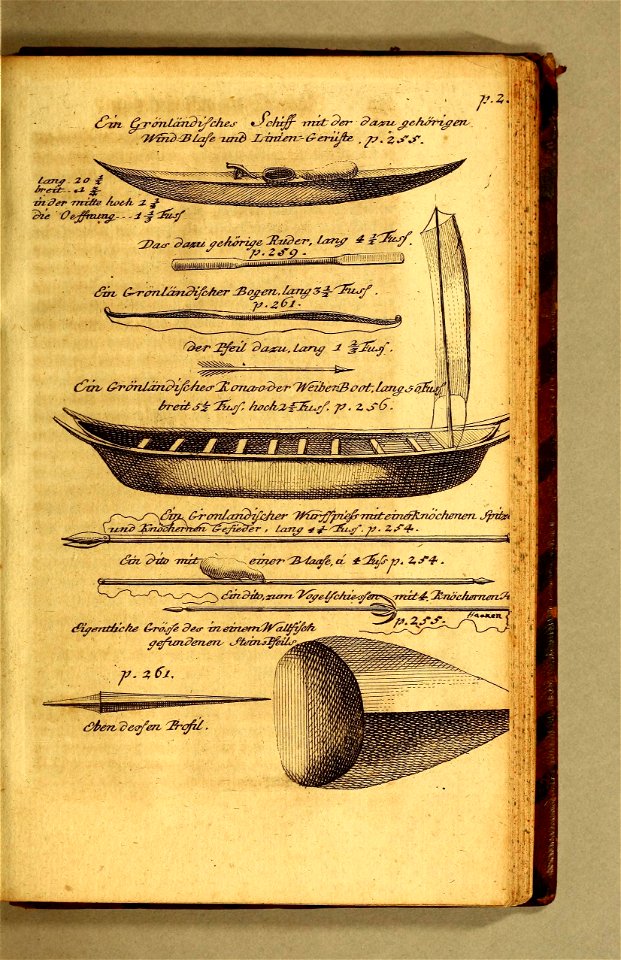 p.2.
Ein Grönländisches Schiff mit der dazu gehörigen
Wind-Blase und Linien-Gerüste. p. 255.
lang 20 ¼
breit 1 ¼
in der mitte hoch 1 ⅓
die Oeffnung 1 ⅔ Fuss
Das dazu gehörige Ruder, lang 4 ½ Fuss.
p. 259.
Ein Grönländischer Bogen, lang 3 ¾ Fuss.
p. 261.
der Pfeil dazu, lang 1 ⅔ Fuss.
Ein Grönländisches Kona oder Weiber Boot, lang 50 Fuss
breit 5 ½ Fuss. hoch 2 ½ Fuss. p. 256.
Ein Gronländischer Wurffpiess mit einer knöchenen Spitze
und Knöchernen Gefieder, lang 4 ½ Fuss. p. 254.
Ein dito mit einer Blaase, ü 4 Fuss p. 254.
Ein dito, zum Vogelschiessen mit 4 Knöchernen
Haacken
p. 255.
Eigentliche Grösse des in einem Wallfisch
gefundenen Stein=Pfeils
p. 261.
Eben dessen Profil.